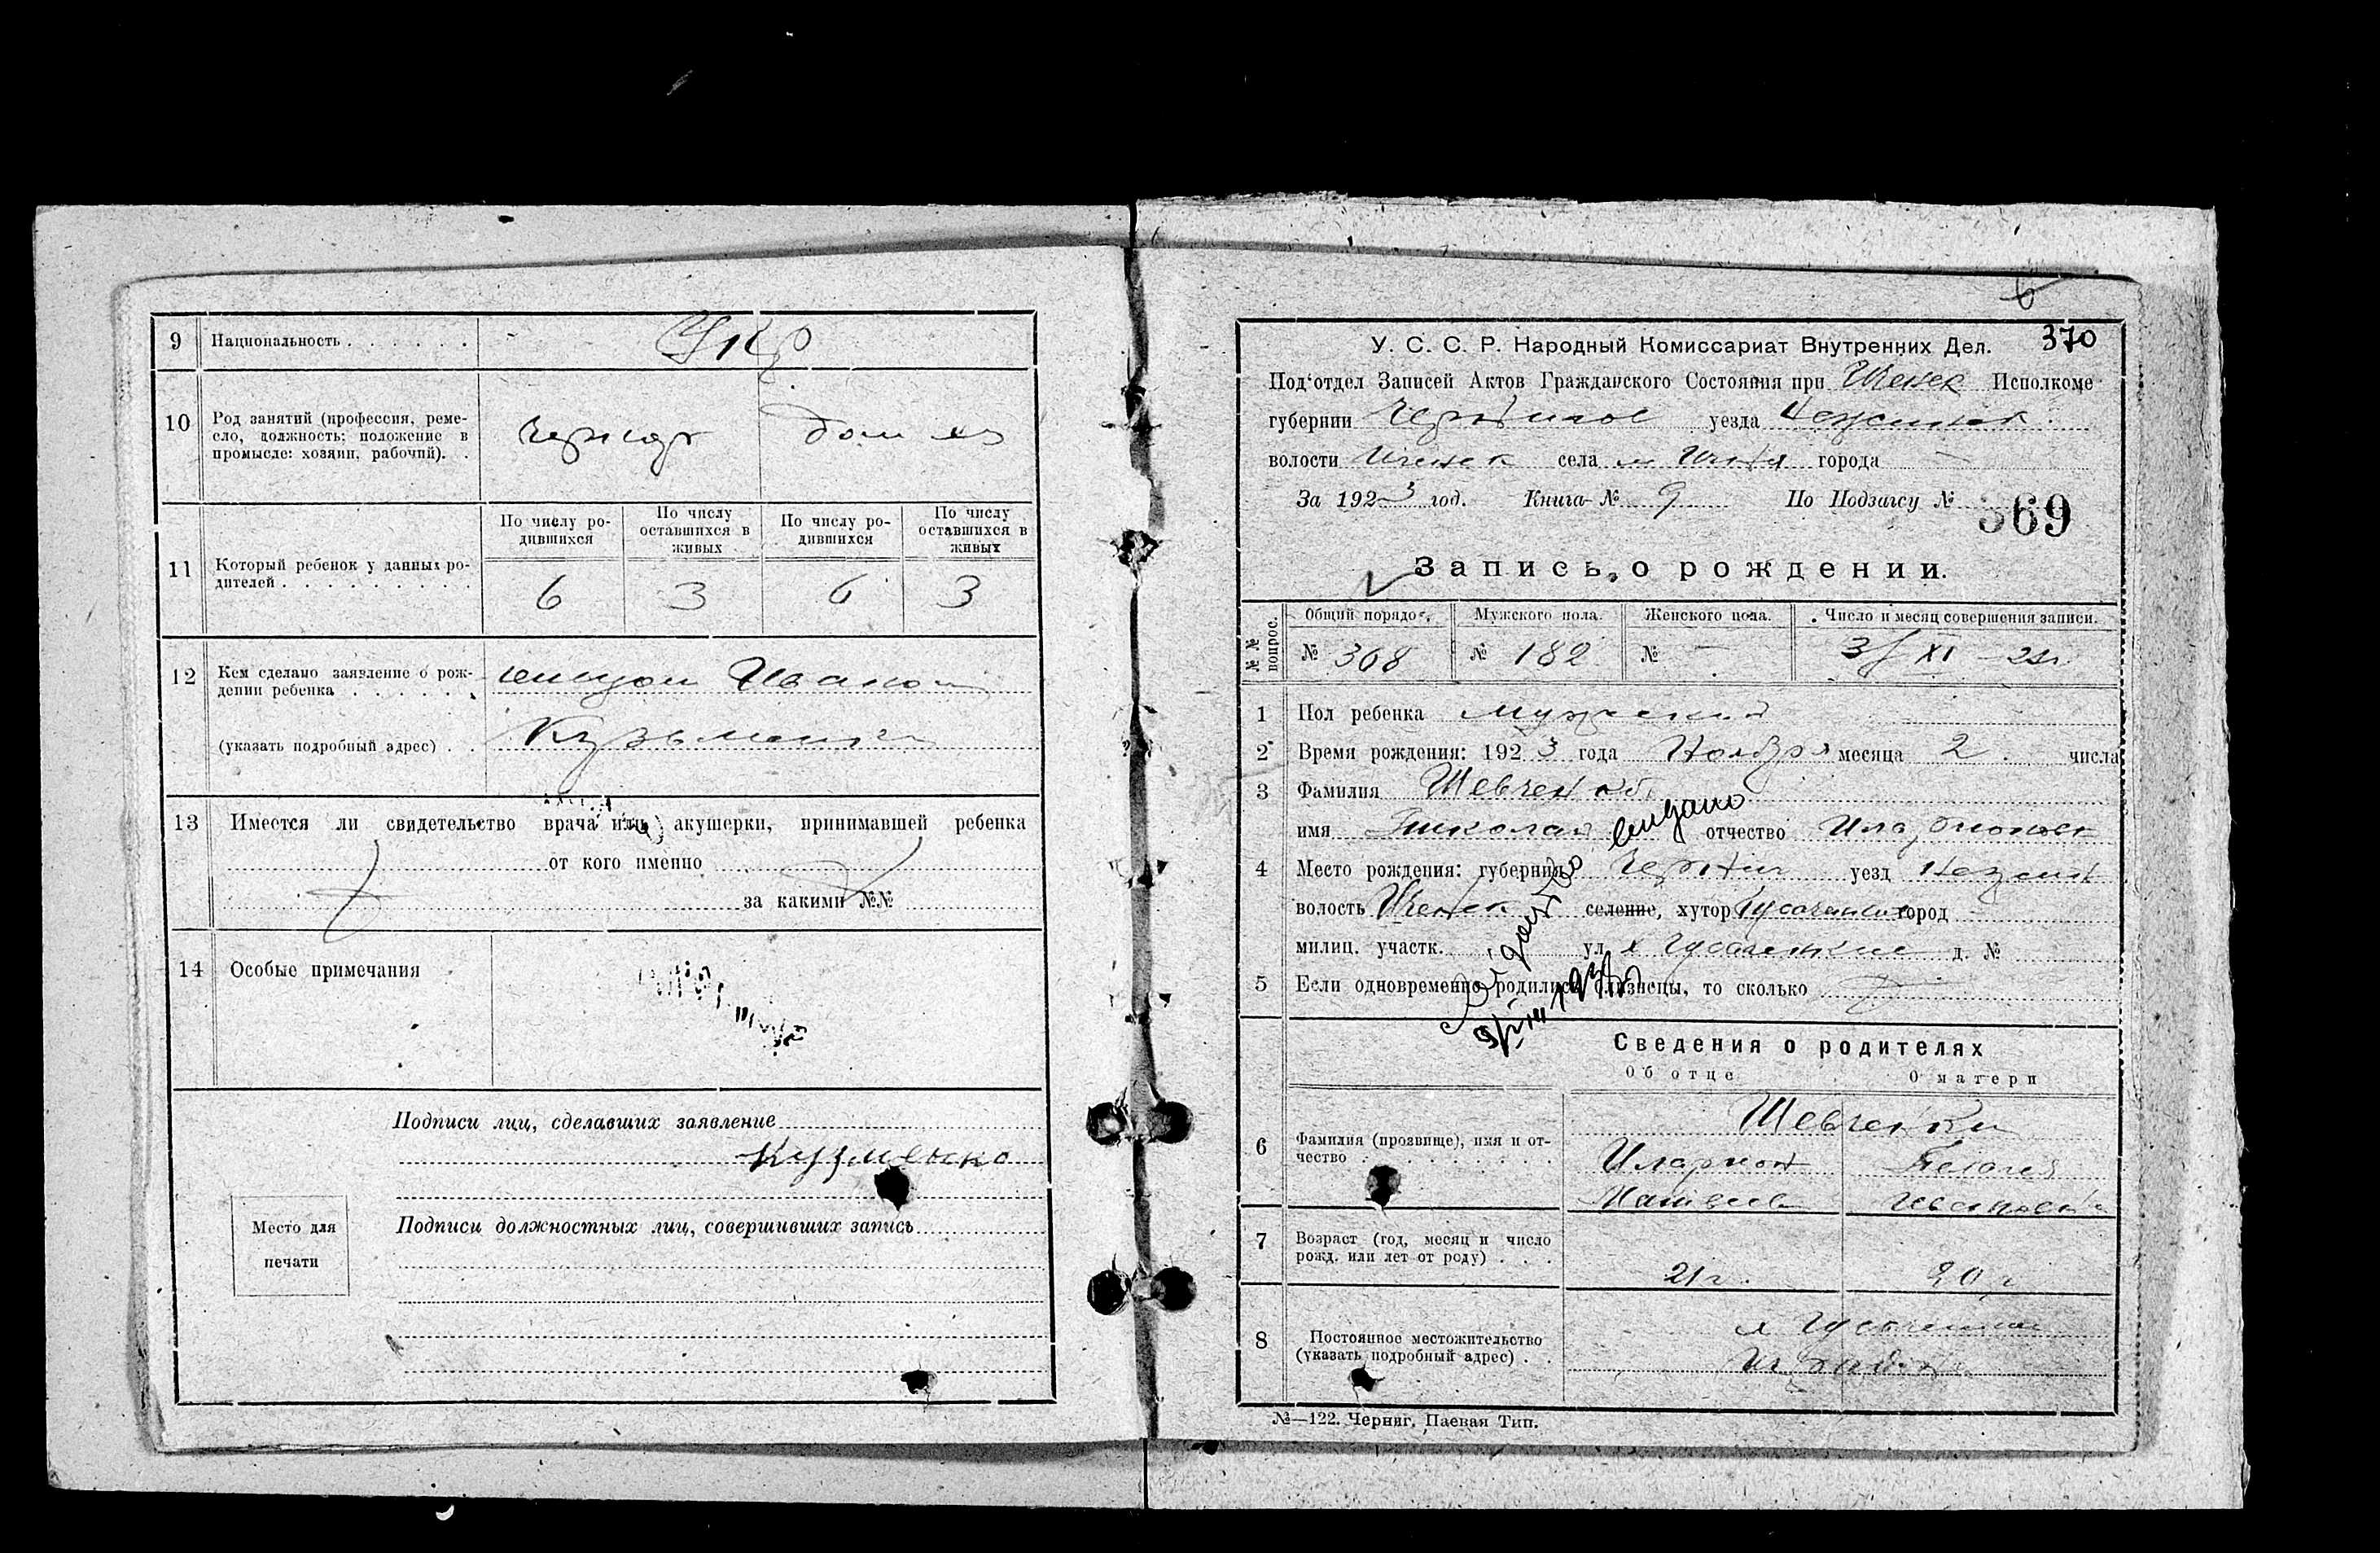 9 Национальность . . . . . . Укр
10 Род занятий (профессия, реме-
сло, должность: положение в
промысле: хозяин, рабочий). .
дом хоз
По числу ро-
дившихся
По числу
оставшихся в
живых
По числу ро-
дившихся
По числу
оставшихся в
живых
11 Который ребенок у данных ро-
дителей . . . . . . . . .
6 3 6 3
12 Кем сделано заявление о рож-
дении ребенка . . . . . . Иваном
(указать подробный адрес) . . Кузьменко
13 Имеется ли свидетельство врача или акушерки, принимавшей ребенка
от кого именно
за какими №№
14 Особые примечания
Подписи лиц, сделавших заявление
Кузменко
Подписи должностных лиц, совершивших запись
Место для
печати
370
У. С. С. Р. Народный Комиссариат Внутренних Дел.
Под'отдел Записей Актов Гражданского Состояния при Ичнек Исполкоме
губернии Чернигов уезда Нежинск
волости Ичнек села м Ичня города —
За 1923 год. Книга № 9 По Подзагсу № 369
Запись о рождении.
№№ вопрос.
Общий порядо Мужского пола. Женского пола. Число и месяц совершения записи.
№ 368 № 182 № — 3/XI 23г
1 Пол ребенка мужский
2 Время рождения: 1923 года Ноября месяца 2 числа
3 Фамилия Шевченко
имя Николай отчество Иларионов
4 Место рождения: губерния Черниг уезд Нежинс
волость Ичнек селение, хутор город
милиц. участк. ул. х д. №
5 Если одновременно родились близнецы, то сколько
выдано
Сведения о родителях
Об отце О матери
Шевченки
6 Фамилия (прозвище), имя и от-
чество . . . . . . . . .
Иларион Пелагея
Матвеев Ивановна
7 Возраст (год, месяц и число
рожд. или лет от роду) . . .
21г. 20г
8 Постоянное местожительство
(указать подробный адрес) . .
№—122. Черниг. Паевая Тип.